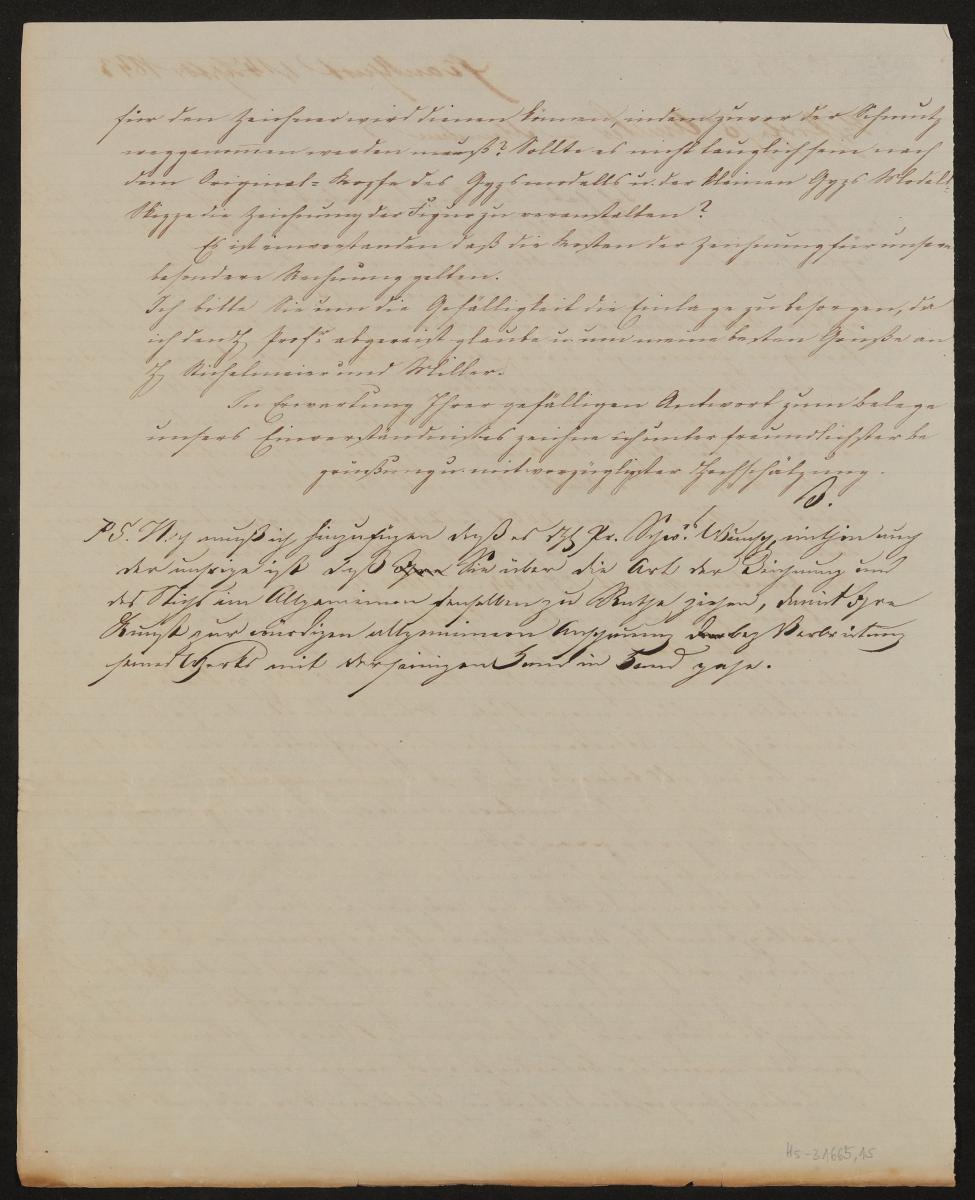 für den Zeichner wird dienen können, indem zuvor der Schmutz
weggenommen werden muß? Sollte es nicht tauglich sein nach
dem Original=Kopfe des Gypsmodells u. der kleinen Gyps Modell=
Skizze die Zeichnung der Figur zu veranstalten?
Es ist einverstanden daß die Kosten der Zeichnung für unsere
besondere Rechnung gelten.
Ich bitte Sie um die Gefälligkeit die Einlage zu besorgen, da
ich den H Profr. abgereist glaube u. um meine besten Grüße an
H Stiehelmeier und Miller.
In Erwartung Ihrer gefälligen Antwort zum Belege
unsers Einverständnisses zeichne ich unter freundlichster Be
grüßung u. mit vorzüglichster Hochschätzung.
S.
P.S. Noch muß ich hinzufügen daß es Pr. Schw's. Wunsch, mithin auch
der unsrige ist daß Sie über die Art der Zeichnung und
des Stichs im Allgemeinen denselben zu Rathe ziehen, damit Ihre
Kunst zur würdigen allgemeinern Anschauung bez Verbreitung
seines Werks mit der seinigen Hand in Hand gehe.
Hs-31665,15